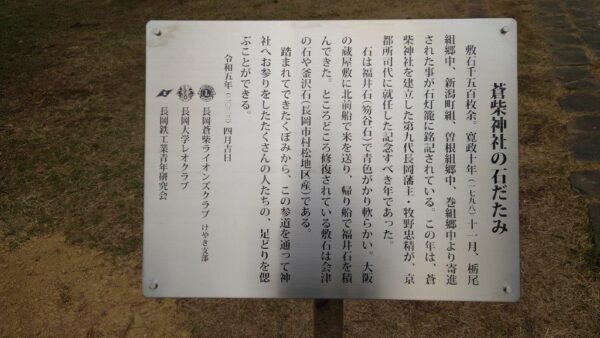 蒼柴神社の石だたみ
敷石千五百枚余。寛政十年(一七九八)十一月、栃尾
組郷中、新潟町組、曽根組郷中、巻組郷中より寄進
された事が石灯籠に銘記されている。この年は、蒼
柴神社を建立した第九代長岡藩主・牧野忠精が、京
都所司代に就任した記念すべき年であった。
石は福井石(笏谷石)で青色がかり軟らかい。大阪
の蔵屋敷に北前船で米を送り、帰り船で福井石を積
んできた。ところどころ修復されている敷石は会津
の石や釜沢石(長岡市村松地区産)である。
踏まれてできたくぼみから、この参道を通って神
社へお参りをしたたくさんの人たちの、足どりを偲
ぶことができる。
令和五年(二〇二三)四月吉日
長岡蒼柴ライオンズクラブ けやき支部
長岡大学レオクラブ
長岡鉄工業青年研究会